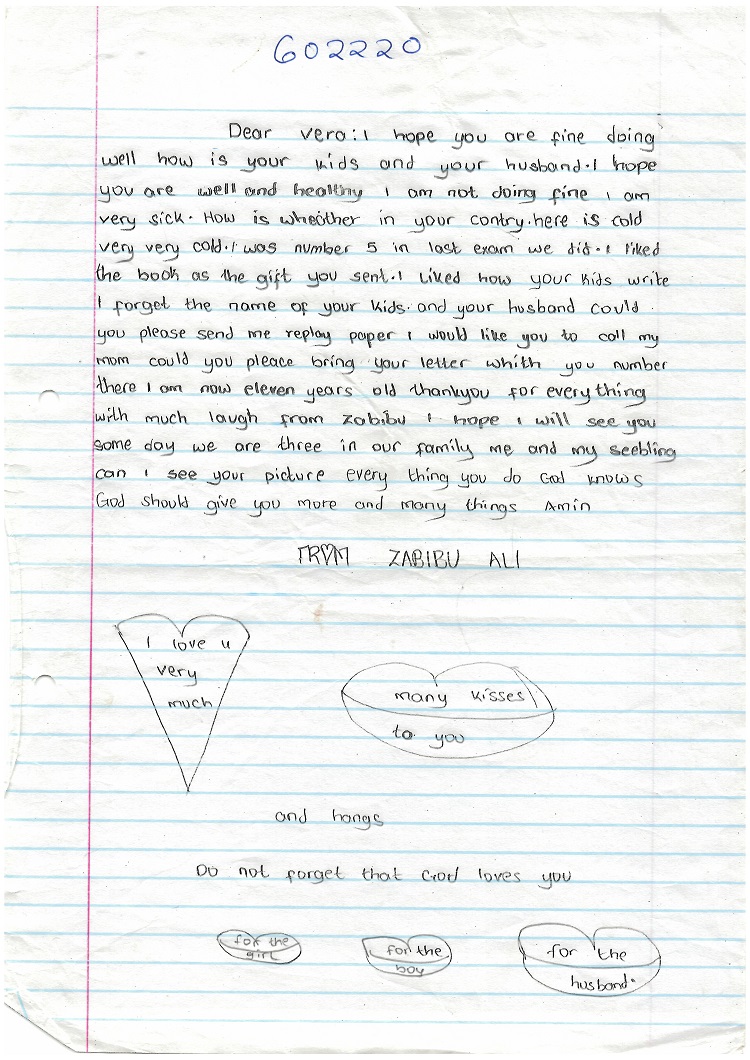 602220
Dear vera: I hope you are fine doing
well how is your kids and your husband. I hope
you are well and healthy I am not doing fine I am
very sick. How is wheather in your contry. here is cold
very very cold. I was number 5 in last exam we did. I liked
the book as the gift you sent. I liked how your kids write
I forget the name of your kids. and your husband could
you please send me replay paper I would like you to call my
mom could you pleace bring your letter whith you number
there I am now eleven years old thankyou for every thing
with much laugh from zabibu I hope I will see you
some day we are three in our family me and my seebling
can I see your picture every thing you do God knows
God should give you more and many things Amin
FROM ZABIBU ALI
I love u
very
much
many kisses
to you
and hangs
Do not forget that God loves you
for the
girl
for the
boy
for the
husband.